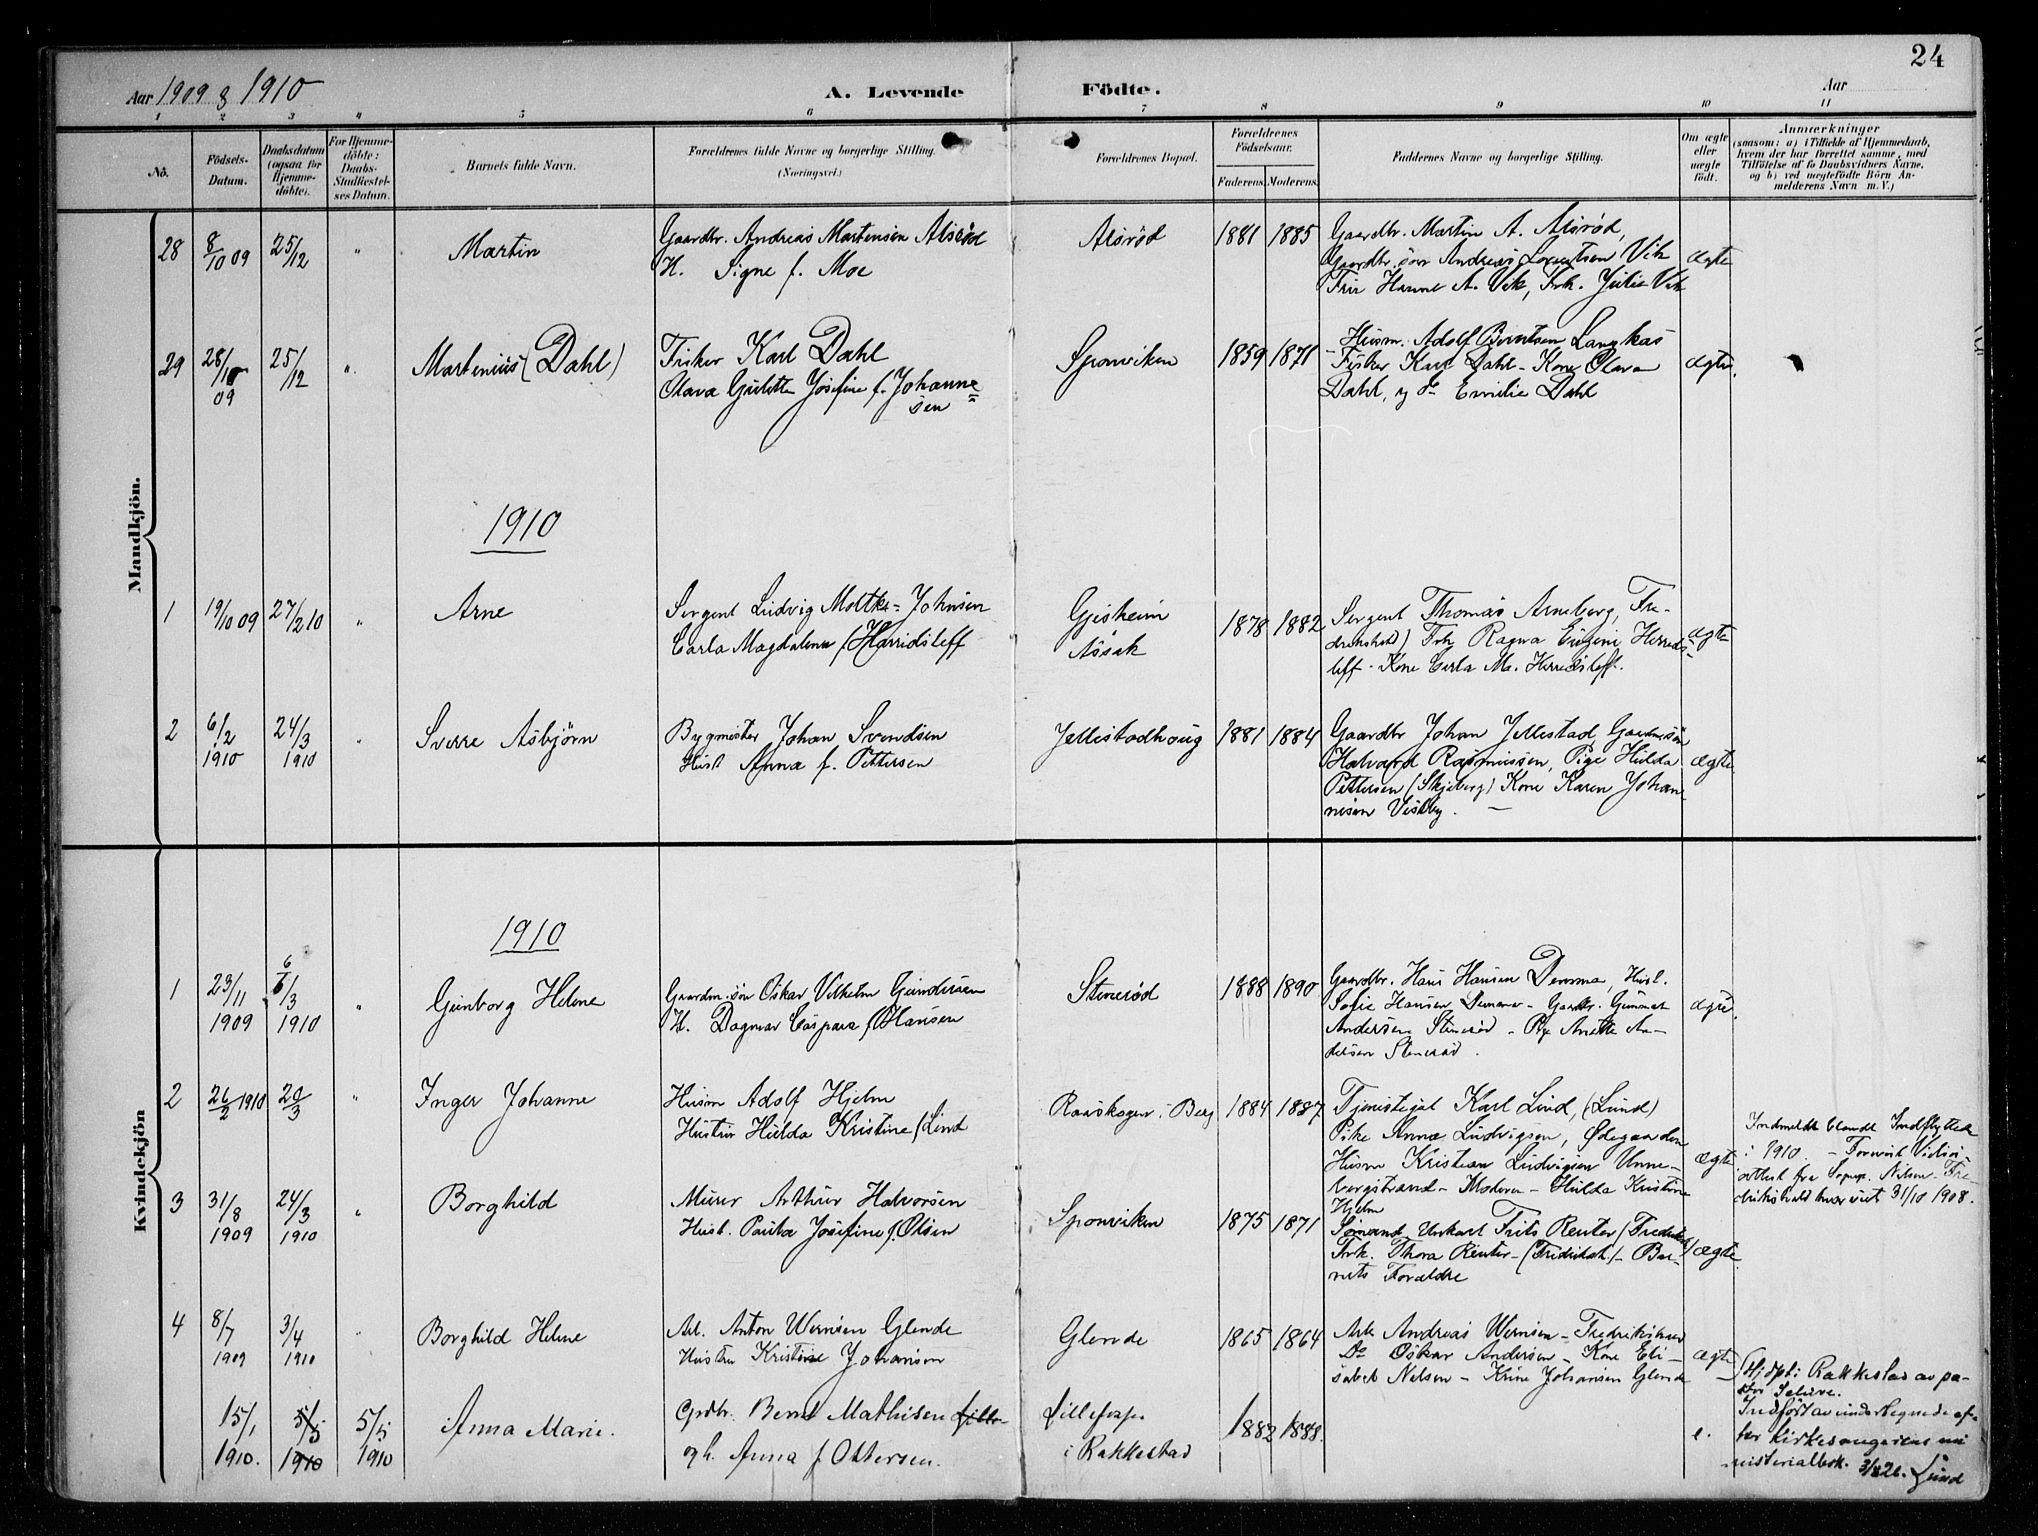 24
Aar 1909 & 1910
A. Levende Födte.
Aar
1 2 3 4 5 6 7 8 9 10 11
No.
Födsels-
Datum.
Daabsdatum
(ogsaa for
Hjemme-
döbte).
For Hjemme-
döbte:
Daabs-
Stadfæstel-
ses Datum.
Barnets fulde Navn.
Forældrenes fulde Navne og borgerlige Stilling.
(Næringsvei.)
Forældrenes Bopæl.
Forældrenes
Födselsaar.
Faderens. Moderens.
Faddernes Navne og borgerlige Stilling.
Om ægte
eller
uægte
födt.
Anmærkninger
(saasom: a) i Tilfælde af Hjemmedaab,
hvem der har forrettet samme, med
Tilföielse af to Daabsvidners Navne,
og b) ved uægtefödte Börn An-
melderens Navn m. V.)
Mandkjön.
28
8/10 09
25/12
"
Martin
Gaardbr. Andreas Martensen Alsröd
H. Signe f. Moe
Alsröd
1881 1885
Gaardbr. Martin A. Alsröd,
Gaardbr. sön Andreas Lorentsen Vik
Fru Hanne A. Vik, Frk. Julie Vik
ægte
29
28/10
09
25/12
"
Martenius (Dahl)
Fisker Karl Dahl
Olava Gulette Josefine f. Johanne
sen
Sponviken
1859 1871
Husm. Adolf Berntsen Langkas
Fisker Karl Dahl - Kone Olava
Dahl, og do Emilie Dahl
ægte.
1910
1
19/10 09
27/2 10
"
Arne
Sergent Ludvig Moltke-Johnsen
Carla Magdalena f. Harridsleff
Gjeisheim
Assak
1878 1882
Sergent Thomas Arneberg, Fre-
drikshald) Frk Ragna Eugenie Herreds-
leff - Kone Carla M. Herredsleff.
ægte
2
6/2
1910
24/3
1910
"
Sverre Asbjörn
Bygmester Johan Svendsen
Hust Anna f. Pettersen
Jellestadhoug
1881 1884
Gaardbr Johan Jellestad Gaardmsön
Halvard Rasmussen, Pige Hilda
Pettersen (Skjeberg) Kone Karen Johan-
nesen Viskby. —
ægte
Kvindekjön
1910
1
23/11
1909
6
6/3
1910
"
Gunborg Helene
Gaardm. sön Oskar Vilhelm Gundersen
H. Dagmar Caspara f. Hansen
Stenerød
1888 1890
Gaardbr. Hans Hansen Demma, Hust.
Sofie Hansen Demma - Gaardbr. Gunnar
Andersen Stenerød - Pige Anette An-
dersen Stenerød.
ægte.
2
26/2 1910
20/3
"
Inger Johanne
Husm Adolf Hjelm
Hustru Hulda Kristine f. Lind
Raaskogen i Berg
1884 1887
Tjenestegut Karl Lind, (Lund)
Pike Anna Ludvigsen, Ødegaarden
Husm Kristian Ludvigsen Unne-
bergstrand - Moderen - Hulda Kristine
Hjelm
ægte
Indmeldt blandt Indflyttede
i 1910. - Forevist Vielses-
attest fra Sogep. Nilsen Fre-
drikshald hvor viet 31/10 1908.
3
31/8
1909
24/3
1910
"
Borghild
Murer Arthur Halvorsen
Hust. Paula Josefine f. Olsen
Sponviken
1875 1871
Sømand Unkarl Frits Renter (Fredriksh)
Frk. Thora Renter - (Fredriksh.) - Bar-
nets Forældre
ægte
4
8/7
1909
3/4
1910
"
Borghild Helene
Arb. Anton Wernsen Glende
Hustru Kristine Johansen
Glende
1865 1864
Arb Andreas Wernsen - Fredrikshald
Do Oskar Andersen - Kone Eli-
sabet Nilsen - Krine Johansen Glende
ægte
15/1
1910.
5/5
1910
5/5
1910
Anna Marie.
Grdbr. Bernt Mathisen
og h. Anna f Ottersen.
i Rakkestad
1882 1888.
e.
Hj.dpt i Rakkestad av pa-
stor
Indfört av undertegnede ef-
ter kirkesangerens mi
nisterialbok. 3/8 26. Lund